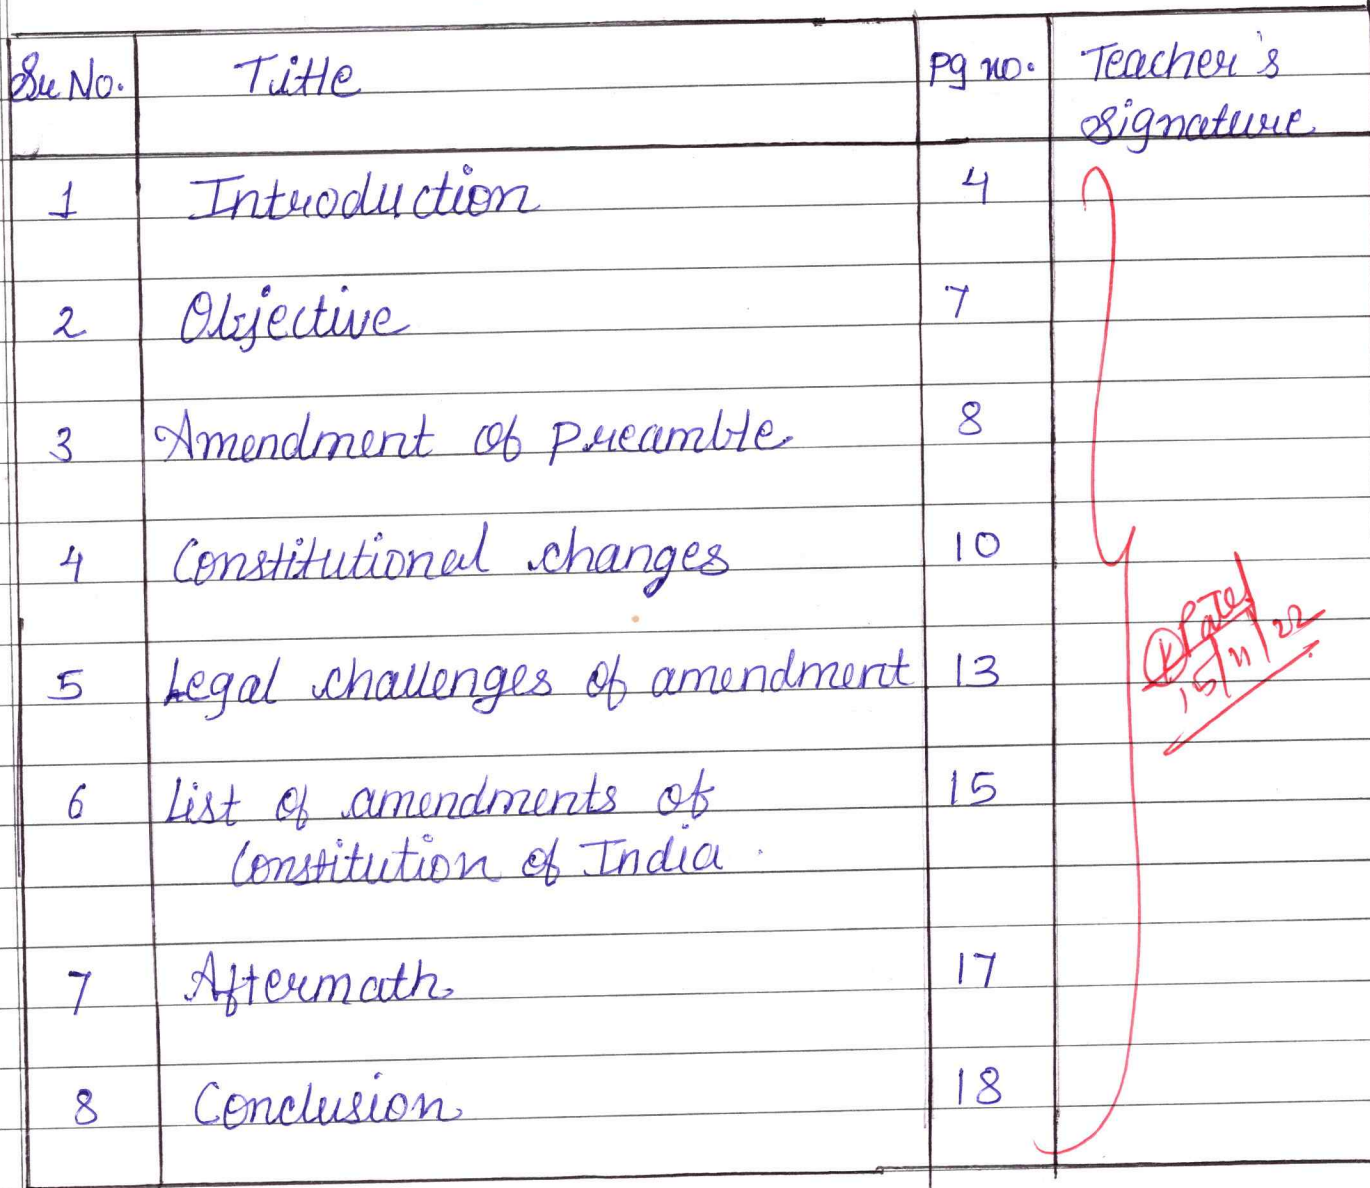 Sr No. Title Pg no. Teacher's
signature
1 Introduction 4
2 Objective 7
3 Amendment of preamble 8
4 Constitutional changes 10
5 Legal challenges of amendment 13
6 List of amendments of 15
Constitution of India.
7 Aftermath 17
8 Conclusion 18
15/11/22